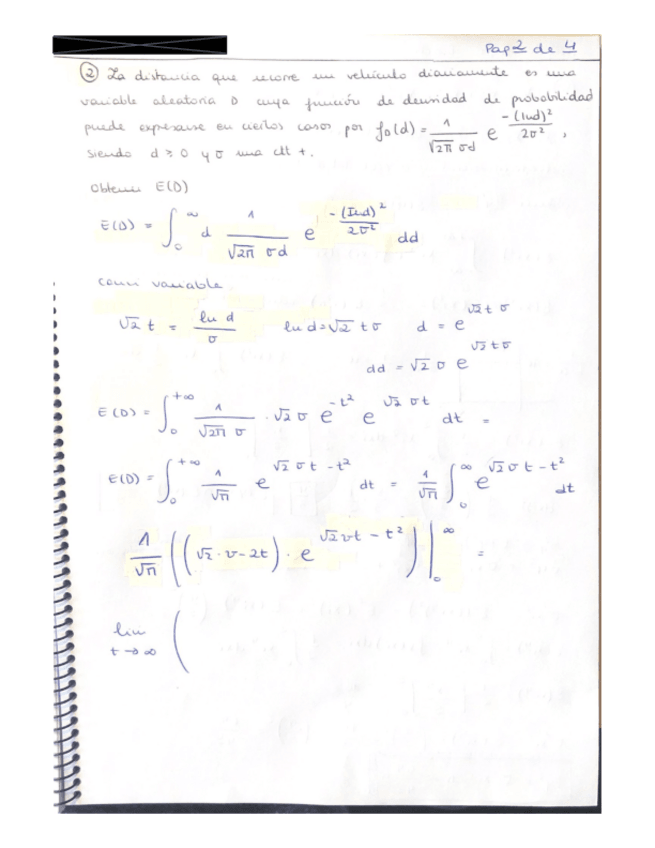 Pag 2 de 4
② La distancia que recorre un vehículo diariamente es una
variable aleatoria D cuya función de densidad de probabilidad
puede expresarse en ciertos casos por f_D(d) = 1/(√2π σd) e^(-(lnd)²/2σ²),
siendo d ≥ 0 y σ una ctt +.
Obtener E(D)
E(D) = ∫₀^∞ d 1/(√2π σd) e^(-(Lnd)²/2σ²) dd
cambi variable.
√2 t = ln d/σ   ln d = √2 t σ   d = e^(√2 t σ)
dd = √2 σ e^(√2 t σ)
E(D) = ∫₀^(+∞) 1/(√2π σ) · √2 σ e^(-t²) e^(√2 σt) dt =
E(D) = ∫₀^(+∞) 1/√π e^(√2 σt - t²) dt = 1/√π ∫₀^∞ e^(√2 σt - t²) dt
1/√π ((√2 · σ - 2t) · e^(√2 σt - t²))|₀^∞ =
lim t→∞ (